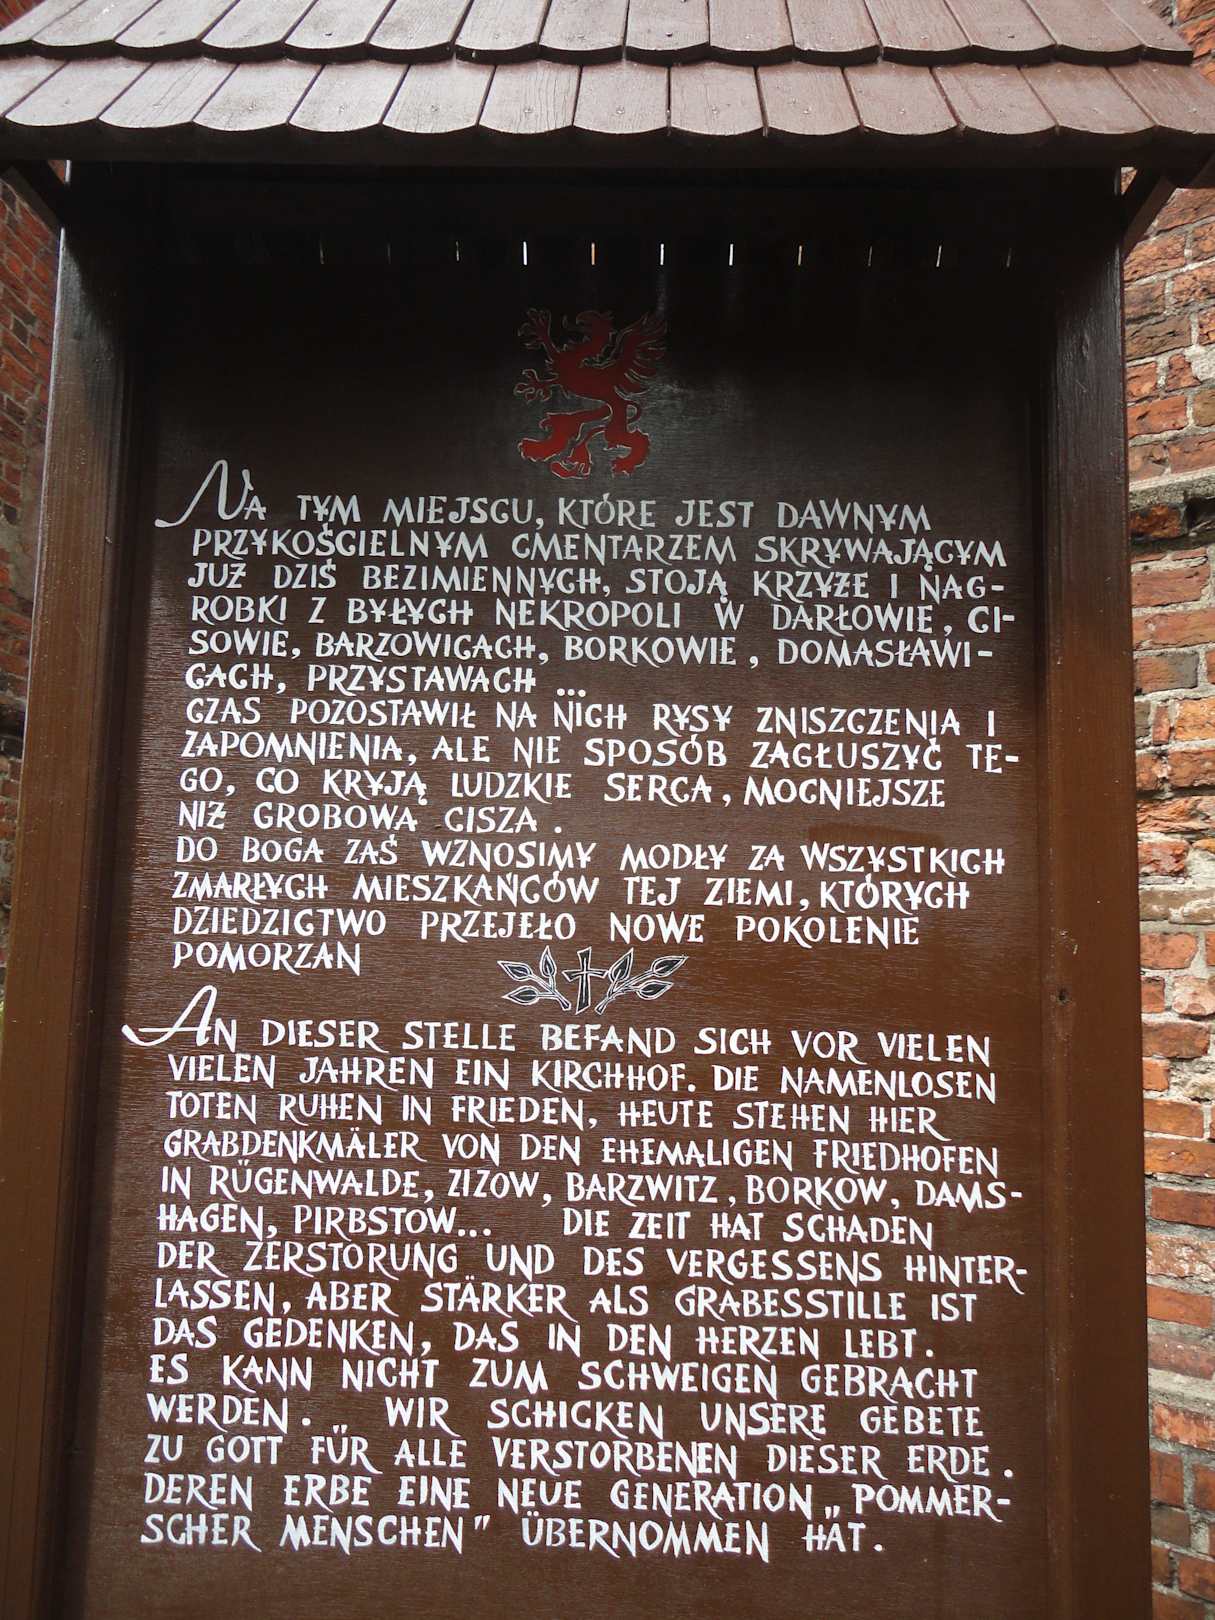 NA TYM MIEJSCU, KTÓRE JEST DAWNYM
PRZYKOŚCIELNYM CMENTARZEM SKRYWAJĄCYM
JUŻ DZIŚ BEZIMIENNYCH, STOJĄ KRZYŻE I NAG-
ROBKI Z BYŁYCH NEKROPOLI W DARŁOWIE, CI-
SOWIE, BARZOWICACH, BORKOWIE, DOMASŁAWI-
CACH, PRZYSTAWACH ...
CZAS POZOSTAWIŁ NA NICH RYSY ZNISZCZENIA I
ZAPOMNIENIA, ALE NIE SPOSÓB ZAGŁUSZYĆ TE-
GO, CO KRYJĄ LUDZKIE SERCA, MOCNIEJSZE
NIŻ GROBOWA CISZA.
DO BOGA ZAŚ WZNOSIMY MODŁY ZA WSZYSTKICH
ZMARŁYCH MIESZKAŃCÓW TEJ ZIEMI, KTÓRYCH
DZIEDZICTWO PRZEJEŁO NOWE POKOLENIE
POMORZAN
AN DIESER STELLE BEFAND SICH VOR VIELEN
VIELEN JAHREN EIN KIRCHHOF. DIE NAMENLOSEN
TOTEN RUHEN IN FRIEDEN, HEUTE STEHEN HIER
GRABDENKMÄLER VON DEN EHEMALIGEN FRIEDHOFEN
IN RÜGENWALDE, ZIZOW, BARZWITZ, BORKOW, DAMS-
HAGEN, PIRBSTOW... DIE ZEIT HAT SCHADEN
DER ZERSTORUNG UND DES VERGESSENS HINTER-
LASSEN, ABER STÄRKER ALS GRABESSTILLE IST
DAS GEDENKEN, DAS IN DEN HERZEN LEBT.
ES KANN NICHT ZUM SCHWEIGEN GEBRACHT
WERDEN. WIR SCHICKEN UNSERE GEBETE
ZU GOTT FÜR ALLE VERSTORBENEN DIESER ERDE.
DEREN ERBE EINE NEUE GENERATION „POMMER-
SCHER MENSCHEN" ÜBERNOMMEN HAT.